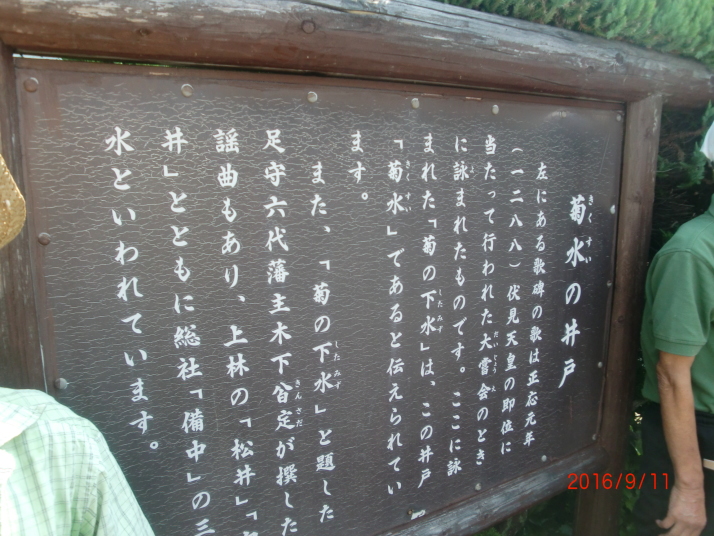 菊水の井戸
きくすい
左にある歌碑の歌は正応元年
（一二八八）伏見天皇の即位に
当たって行われた大嘗会のとき
だいじょうえ
に詠まれたものです。ここに詠
よ
まれた「菊の下水」は、この井戸
したみず
「菊水」であると伝えられてい
きくすい
ます。
また、「菊の下水」と題した
したみず
足守六代藩主木下㒶定が撰した
きんさだ
謡曲もあり、上林の「松井」「
井」とともに総社「備中」の三
水といわれています。
2016/9/11